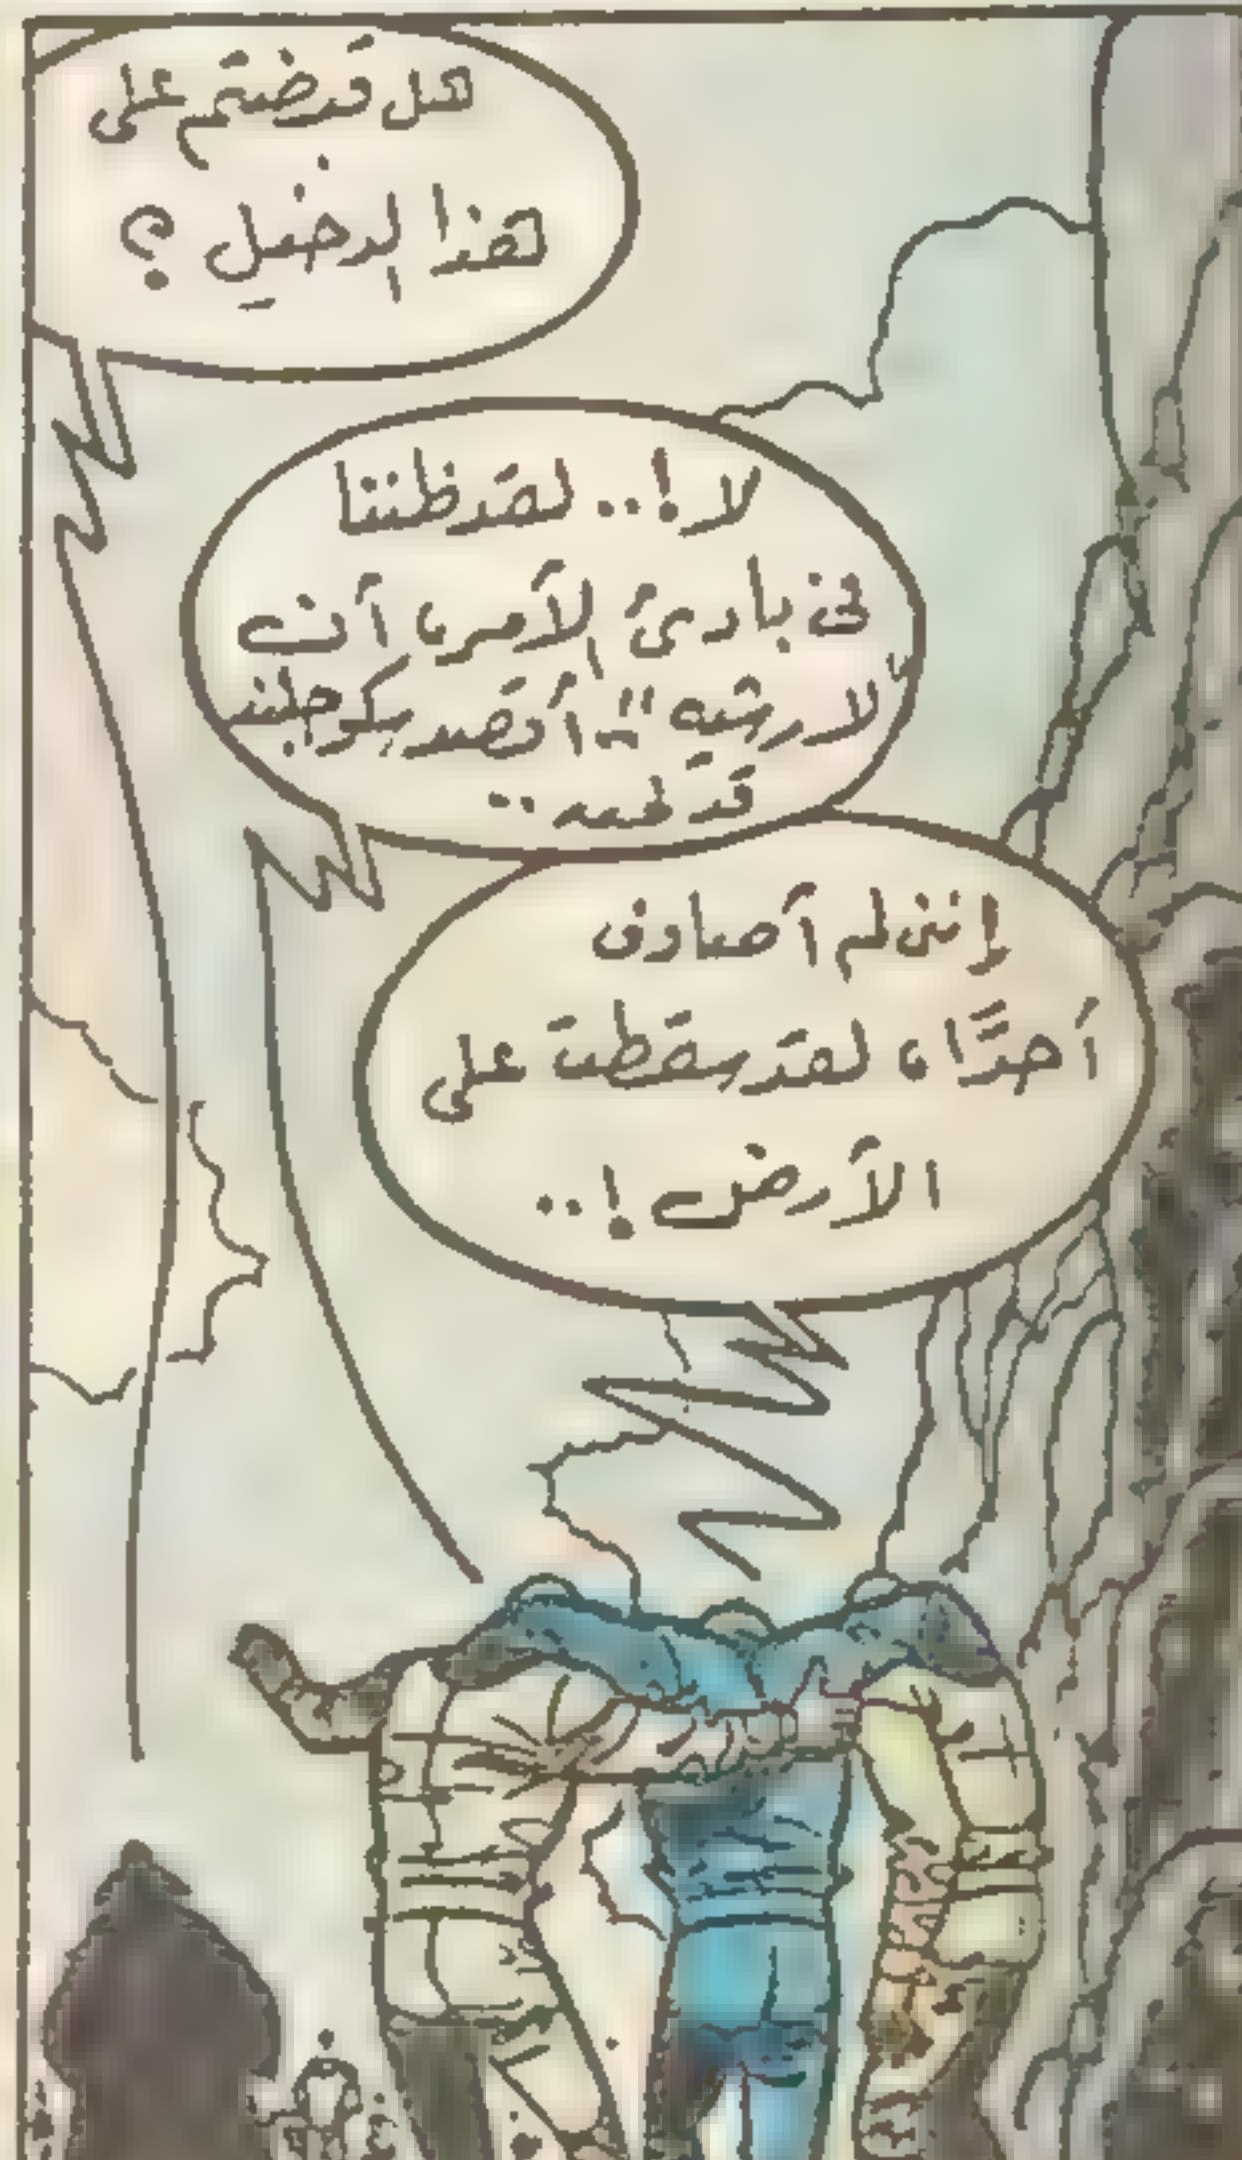 هل قبضتم على
هذا الدخيل ؟
لا !.. لقد ظننا
فى بادئ الأمر، أن
"لارشيه" = أقصد سكوجلند
قد لمحه ..
إننى لم أصادف
أحدًا، لقد سقطت على
الأرض !..